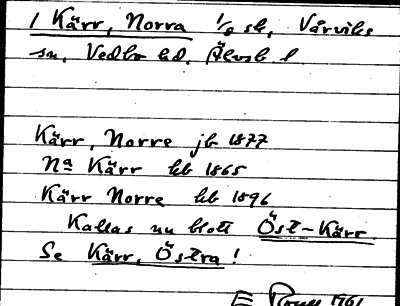 1 Kärr, Norra 1/8 sk, Vårviks
sn, Vedbo hd, Älvsb l
Kärr, Norre jb 1877
Na Kärr hb 1865
Kärr Norre hb 1896
Kallas nu blott Öst-Kärr
Se Kärr, Östra!
E 1961